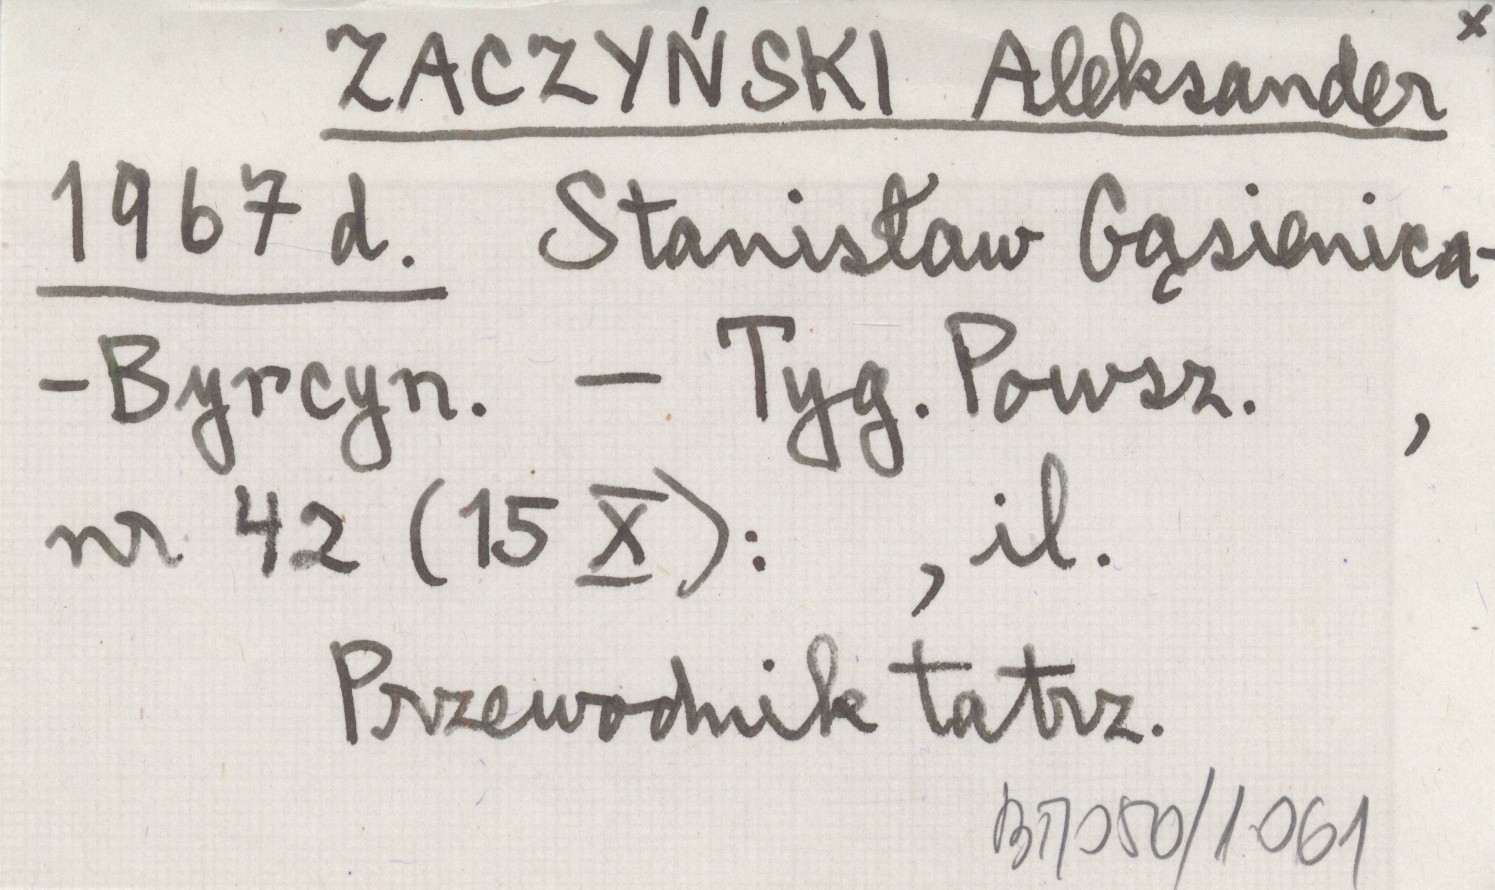 ZACZYŃSKI Aleksander x
1967 d. Stanisław Gąsienica-
-Byrcyn. – Tyg. Powsz. ,
nr 42 (15 X): , il.
Przewodnik tatrz.
/1061